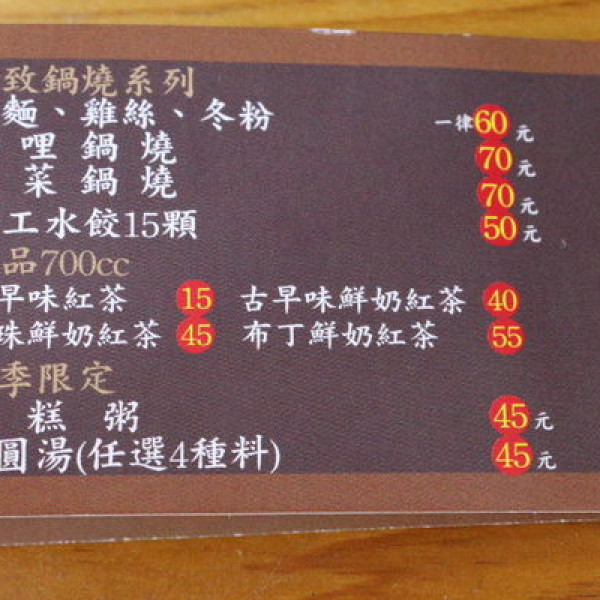 致鍋燒系列
麵、雞絲、冬粉 一律60元
哩鍋燒 70元
菜鍋燒 70元
工水餃15顆 50元
品700cc
早味紅茶 15 古早味鮮奶紅茶 40
珠鮮奶紅茶 45 布丁鮮奶紅茶 55
季限定
糕粥 45元
圓湯(任選4種料) 45元